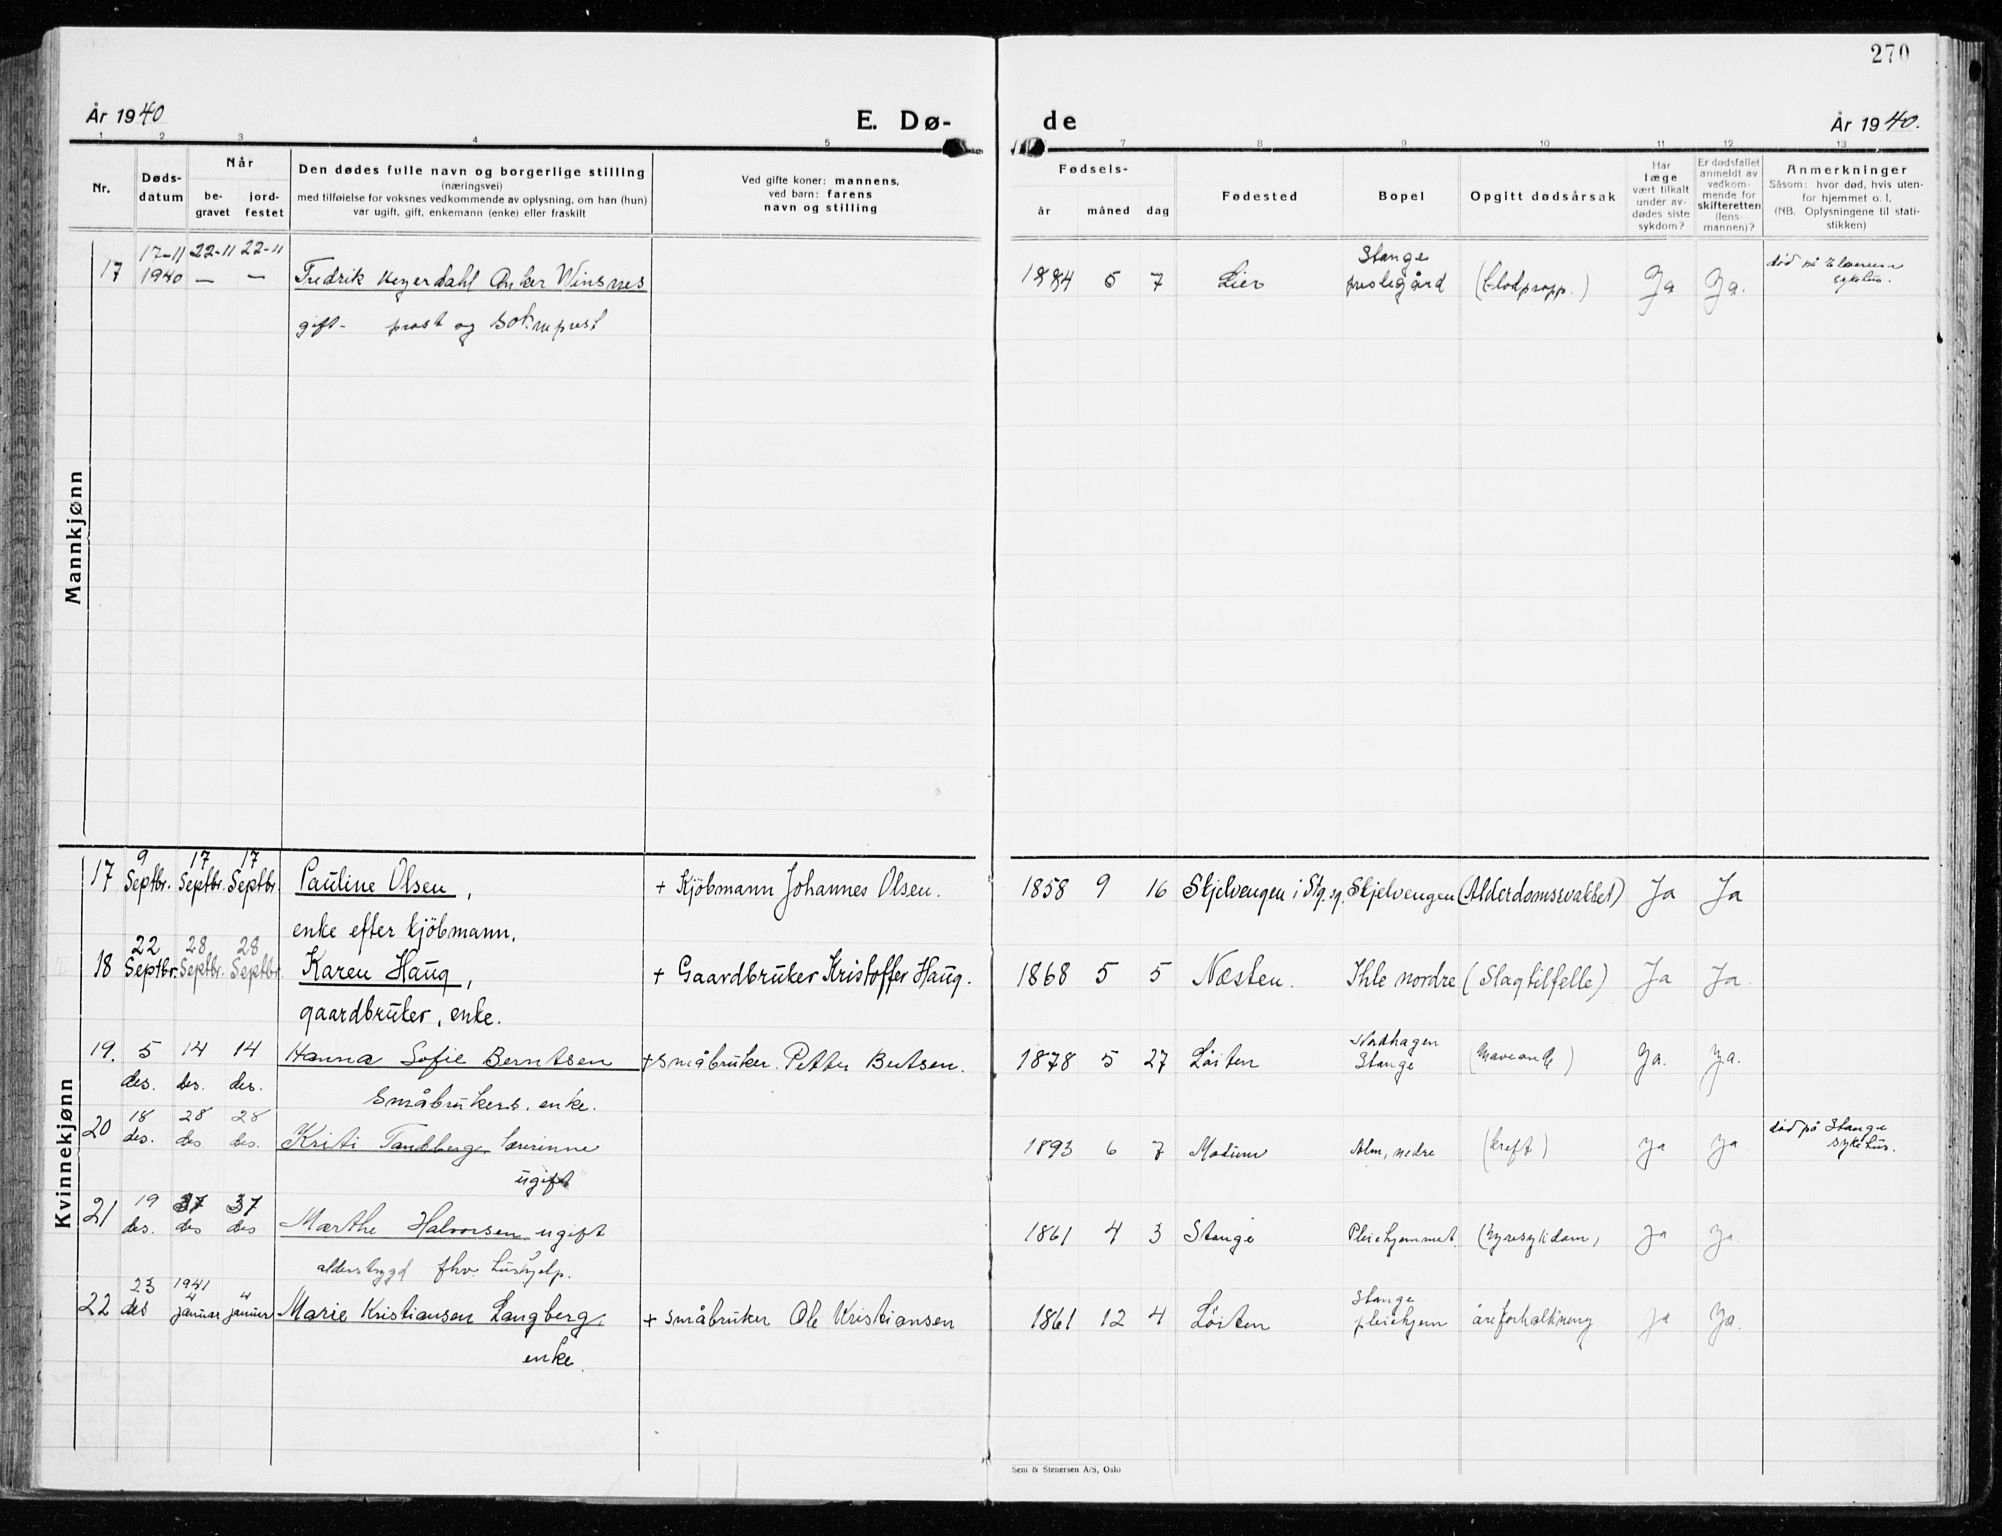 270
År 1940
E. Dø-
de
År 1940.
1 2 3 4 5 7 8 9 10 11 12 13
Nr.
Døds-
datum
Når
be-
gravet
jord-
festet
Den dødes fulle navn og borgerlige stilling
(næringsvei)
med tilføielse for voksnes vedkommende av oplysning, om han (hun)
var ugift, gift, enkemann (enke) eller fraskilt
Ved gifte koner: mannens,
ved barn: farens
navn og stilling
Fødsels-
år måned dag
Fødested
Bopel
Opgitt dødsårsak
Har
læge
vært tilkalt
under av-
dødes siste
sykdom?
Er dødsfallet
anmeldt av
vedkom-
mende for
skifteretten
(lens-
mannen)?
Anmerkninger
Såsom: hvor død, hvis uten-
for hjemmet o. l.
(NB. Oplysningene til stati-
stikken)
Mannkjønn
17-11 22-11 22-11 Stange død på
17 1940 — — Fredrik Heyerdahl Anker Winsnes 1884 5 7 Lier prestegård (blodpropp.) Ja Ja. sykehus.
gift - prost og sokneprest
Kvinnekjønn
9 17 17
17 Septbr. Septbr. Septbr. Pauline Olsen, + Kjöbmann Johannes Olsen. 1858 9 16 Skjelvengen i Stg. sg. Skjelvengen (Alderdomssvakhet) Ja Ja
enke efter kjöbmann.
22 28 28
18 Septbr. Septbr. Septbr. Karen Haug, + Gaardbruker Kristoffer Haug. 1868 5 5 Næsten. Ihle nordre (Slagtilfelle) Ja Ja.
gaardbruker, enke.
Nordhagen
19. 5 14 14 Hanna Sofie Berntsen + småbruker. Petter Bentsen. 1878 5 27 Löiten Stange Ja. Ja.
des. des. des. Småbrukers. enke.
18 28 28 død på Stange
20 des. des des. Kristi Tandberg. lærerinne 1893 6 7 Modum Alm, nedre (kreft) Ja Ja sykehus.
ugift
19 37 37
21 des. des des Marthe Halvorsen ugift 1861 4 3 Stange Pleiehjemmet. (Nyresykdom, Ja Ja.
alderstrygd fhv. hushjelp.
23 1941
4 4 Stange
22 des januar januar Marie Kristiansen Langberg. + småbruker Ole Kristiansen 1861 12 4 Löiten pleiehjem åreforkalkning Ja Ja.
enke.
Sem & Stenersen A/S, Oslo